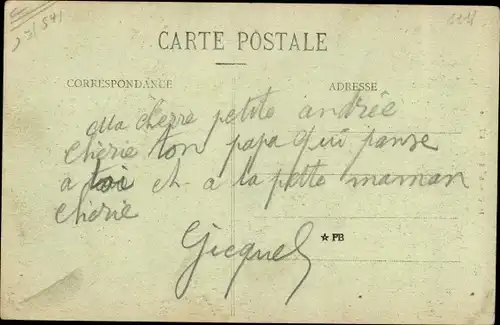 23/541
CARTE POSTALE
CORRESPONDANCE
ADRESSE
Ma cherre petite andrée
cherie ton papa qui panse
a toi et a ta petite maman
cherie
Gicquel
★ PB